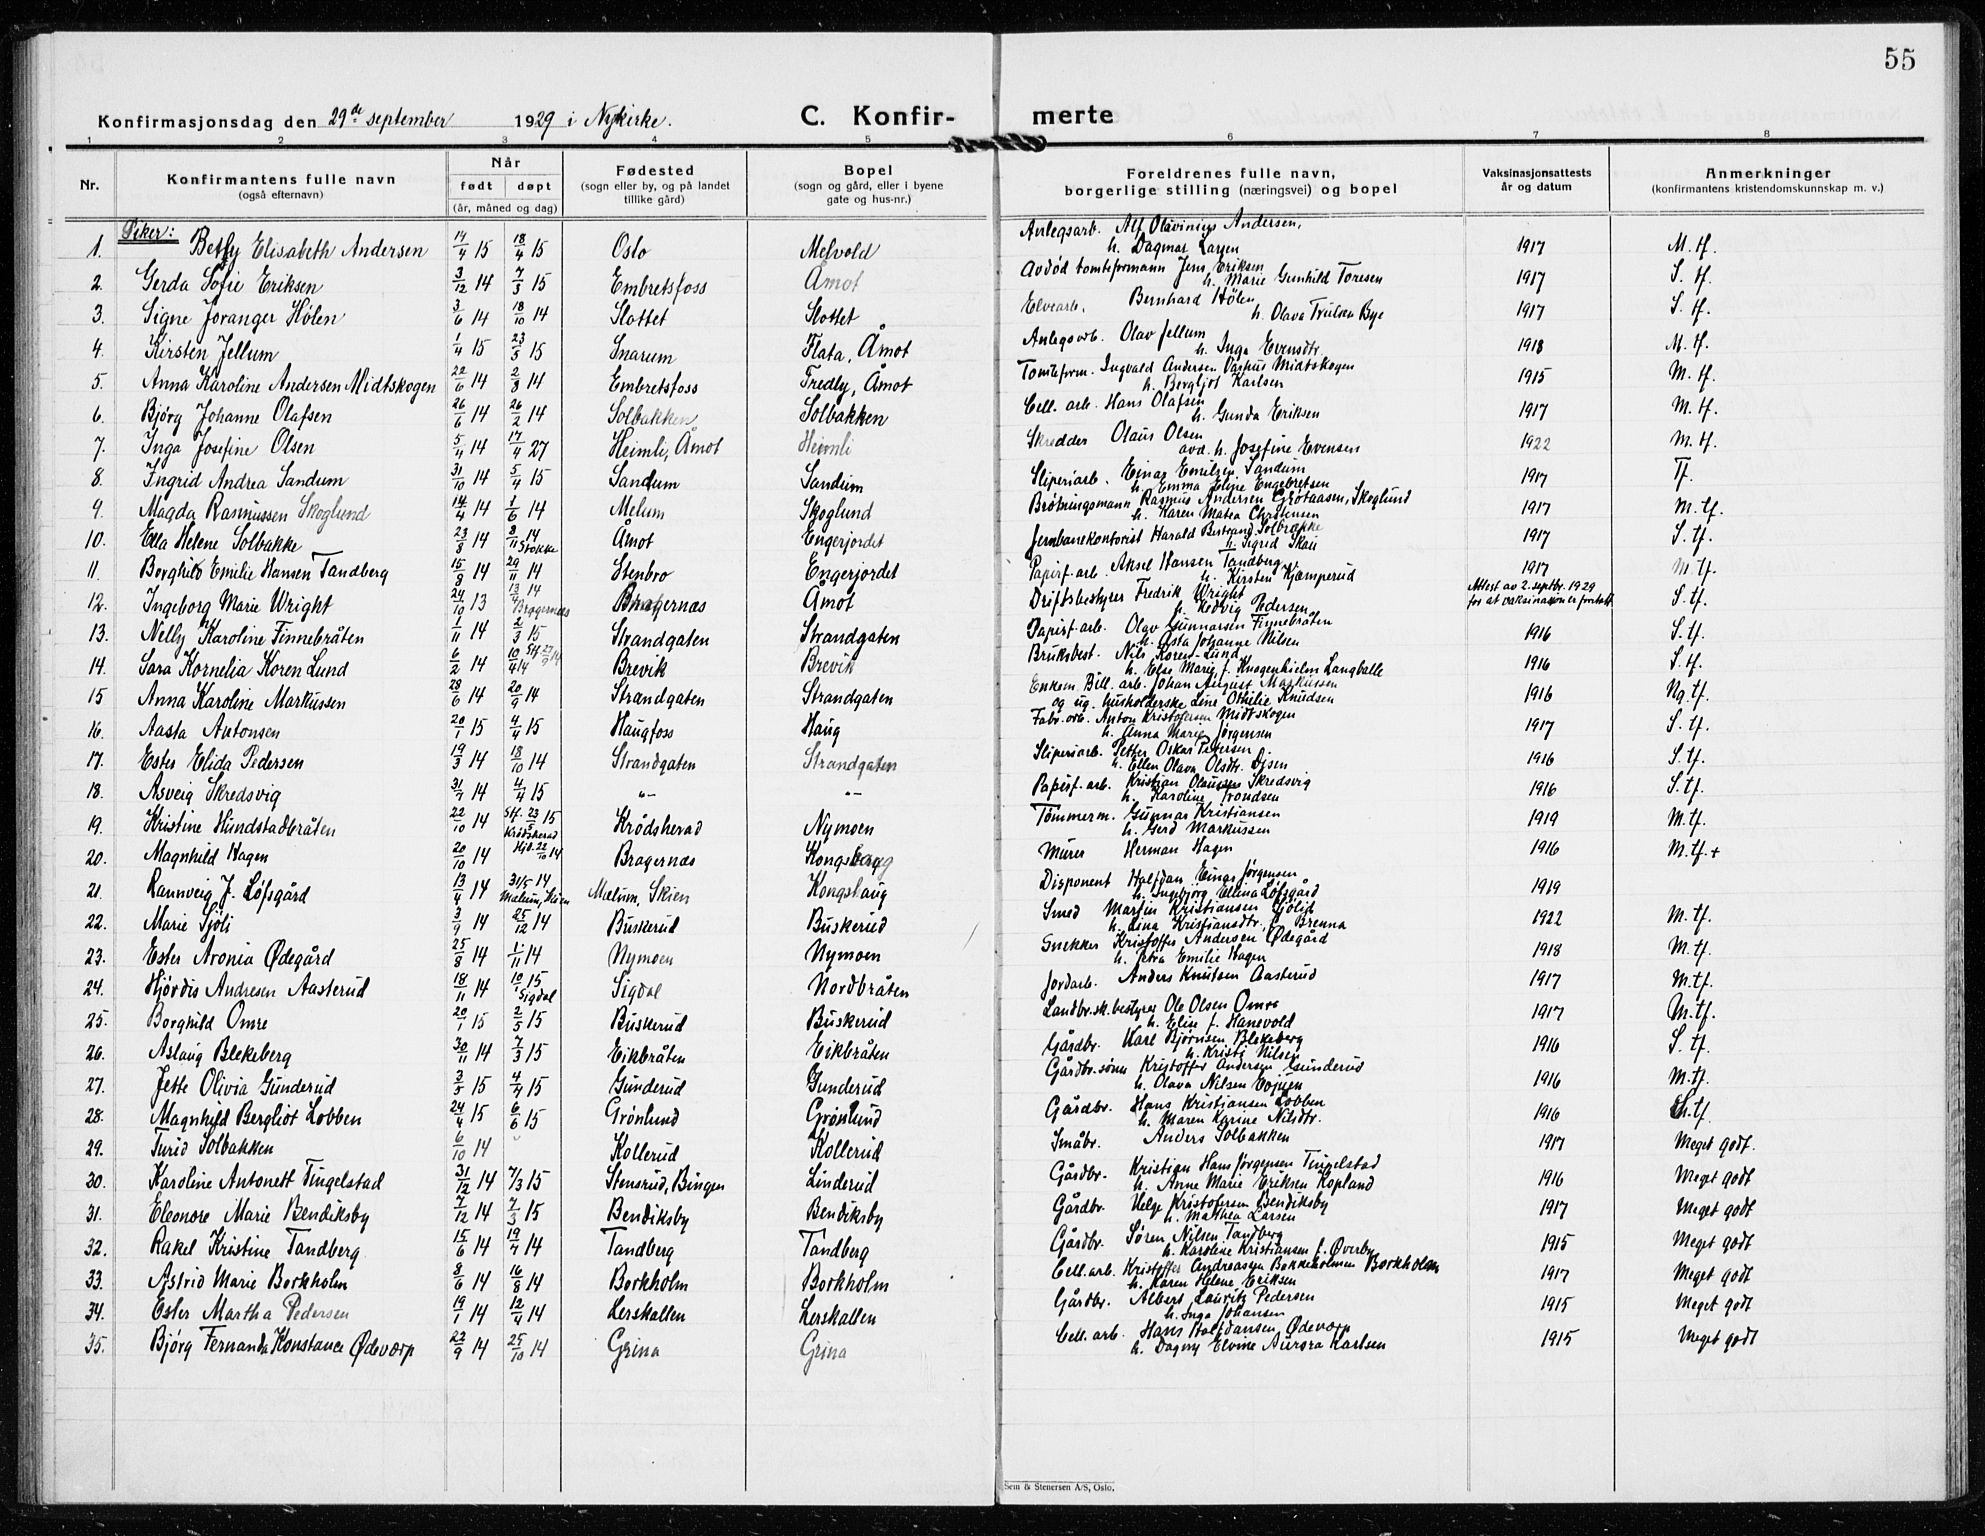 55
Konfirmasjonsdag den 29de september 1929 i Nykirke. C. Konfir- merte
1 2 3 4 5 6 7 8
Nr. Konfirmantens fulle navn (også efternavn) Når født døpt (år, måned og dag) Fødested (sogn eller by, og på landet tillike gård) Bopel (sogn og gård, eller i byene gate og hus-nr.) Foreldrenes fulle navn, borgerlige stilling (næringsvei) og bopel Vaksinasjonsattests år og datum Anmerkninger (konfirmantens kristendomskunnskap m. v.)
Piker:
1. Betsy Elisabeth Andersen 14/4 15 18/4 15 Oslo Melvold Anlegsarb. Alf Olavinius Andersen, h. Dagmar Larsen 1917 M. tf.
2. Gerda Sofie Eriksen 3/12 14 7/3 15 Embretsfoss Åmot Avdød tomteformann Jens Eriksen h. Marie Gunhild Toresen 1917 S. tf.
3. Signe Joranger Hølen 3/6 14 18/10 14 Slottet Slottet Elvearb. Bernhard Hølen h. Olava Trulsen Bye 1917 S. tf.
4. Kirsten Jellum 1/4 15 23/5 15 Snarum Flata, Åmot Anlegsarb. Olav Jellum h. Inga Evensdtr 1918 M. tf.
5. Anna Karoline Andersen Midtskogen 22/6 14 2/8 14 Embretsfoss Fredly, Åmot Tomteform. Ingvald Andersen Varhus Midtskogen h. Bergljot Karlsen 1915 M. tf.
6. Bjørg Johanne Olafsen 26/6 14 26/2 14 Solbakken Solbakken Cell. arb. Hans Olafsen h. Gunda Eriksen 1917 M. tf.
7. Inga Josefine Olsen 5/4 14 17/4 27 Heimli, Åmot Heimli Skredder Olaus Olsen avd. h. Josefine Evensen 1922 M. tf.
8. Ingrid Andrea Sandum 31/10 14 5/4 15 Sandum Sandum Sliperiarb. Einar Emilsen Sandum h. Emma Eline Engebretsen 1917 Tf.
9. Magda Rasmussen Skoglund 14/4 14 1/6 14 Melum Skoglund Brøtningsmann Rasmus Andersen Grøtaasen, Skoglund h. Karen Matea Christensen 1917 M. tf.
10. Ella Helene Solbakke 23/8 14 8/11 14 Stokke Åmot Engerjordet Jernbanekontorist Harald Bertrand Solbakke h. Sigrid Skau 1917 S. tf.
11. Borghild Emilie Hansen Tandberg 15/8 14 29/11 14 Stenbro Engerjordet Papirf. arb. Aksel Hansen Tandberg h. Kirsten Kjæmperud 1917 M. tf.
12. Ingeborg Marie Wright 24/10 13 13/4 14 Bragernæs Bragernæs Åmot Driftsbestyrer Fredrik Wright h. Hedvig Pedersen Attest av 2. septbr. 1929 for at vaksinasjon er foretatt S. tf.
13. Nelly Karoline Finnebråten 1/11 14 2/3 15 Strandgaten Strandgaten Papirf. arb. Olav Gunnarsen Finnebråten h. Asta Johanne Nilsen 1916 S. tf.
14. Sara Kornelia Koren Lund 6/2 14 10/4 14 Stf. 27/9 14 Brevik Brevik Bruksbest. Nils Koren-Lund h. Else Marie f. Knagenhielm Langballe 1916 S. tf.
15 Anna Karoline Markussen 28/6 14 20/9 14 Strandgaten Strandgaten Enkem. Cell. arb. Johan August Markussen og ug. husholderske Line Othilie Knudsen 1916 Ng. tf.
16. Aasta Antonsen 20/1 15 4/4 15 Haugfoss Haug Fabr. arb. Anton Kristofersen Midtskogen h. Anna Marie Jørgensen 1917 S. tf.
17. Ester Elida Pedersen 19/3 14 18/10 14 Strandgaten Strandgaten Sliperiarb. Petter Oskar Pedersen h. Ellen Olava Olsdtr. Disen 1916 S. tf.
18. Asveig Skredsvig 31/7 14 4/4 15 "- "- Papirf. arb. Kristian Olaussen Skredsvig h. Karoline Trondsen 1916 S. tf.
19. Kristine Hundstadbråten 22/10 14 Stf. 23/5 15 Krødsherad Krødsherad Nymoen Tømmerm. Gunnar Kristiansen h. Gerd Markussen 1919 M. tf.
20. Magnhild Hagen 20/10 14 Hjd. 22/10 14 Bragernæs Kongshaug Murer Herman Hagen 1916 M. tf. +
21. Rannveig J. Løfsgård 13/4 14 31/5 14 Melum, Skien Melum, Skien Kongshaug Disponent Halfdan Einar Jørgensen h. Ingebjørg Ellina Løfsgård 1919
22. Marie Sjøli 3/9 14 25/12 14 Buskerud Buskerud Smed Martin Kristiansen Sjølie h. Lina Kristiansdtr. f. Brenna 1922 M. tf.
23. Ester Aronia Ødegård 25/8 14 1/11 14 Nymoen Nymoen Snekker Kristoffer Andersen Ødegård h. Petra Emilie Hagen 1918 M. tf.
24. Hjørdis Andresen Aasterud 18/11 14 10/1 15 Sigdal Sigdal Nordbråten Jordarb. Anders Knutsen Aasterud 1917 M. tf.
25. Borghild Omre 20/1 15 2/5 15 Buskerud Buskerud Landbr.sk.bestyrer Ole Olsen Omre h. Elise f. Hanevold 1917 M. tf.
26. Aslaug Blekeberg 30/11 14 7/3 15 Eikbråten Eikbråten Gårdbr. Karl Bjørnsen Blekeberg h. Kristi Nilsen 1916 S. tf.
27. Jette Olivia Gunderud 3/3 15 4/4 15 Gunderud Gunderud Gårdbr. sønn Kristoffer Andersen Gunderud h. Olava Nilsen 1916 M. tf.
28. Magnhild Bergliot Lobben 24/4 15 6/6 15 Grønlund Grønlund Gårdbr. Hans Kristiansen Lobben h. Maren Karine Nilsdtr. 1916 tf.
29. Turid Solbakken 6/10 14 Kollerud Kollerud Småbr. Anders Solbakken 1917 Meget godt.
30. Karoline Antonett Tingelstad 31/12 14 7/3 15 Stensrud, Bingen Linderud Gårdbr. Kristian Hans Jørgensen Tingelstad h. Anne Marie Eriksen Kopland 1916 Meget godt
31. Eleonore Marie Bendiksby 7/12 14 7/3 15 Bendiksby Bendiksby Gårdbr. Helge Kristofersen Bendiksby h. Mathea Larsen 1917 Meget godt
32. Rakel Kristine Tandberg 15/6 14 19/7 14 Tandberg Tandberg Gårdbr. Søren Nilsen Tandberg h. Karoline Kristiansen f. Øverby 1915 Meget godt
33. Astrid Marie Borkholm 8/6 14 16/8 14 Borkholm Borkholm Cell. arb. Kristoffer Andreasen Bakkeholmen Borkholm h. Karen Helene Eriksen 1917 Meget godt
34. Ester Martha Pedersen 19/1 14 12/4 14 Lerskallen Lerskallen Gårdbr. Albert Lauritz Pedersen h. Inga Johansen 1915 Meget godt
35. Bjørg Fernanda Konstance Ødeværp 22/9 14 25/10 14 Grina Grina Cell. arb. Hans Halfdansen Ødeværp h. Dagny Elvine Aurora Karlsen 1915 Meget godt
Sem & Stenersen A/S, Oslo.